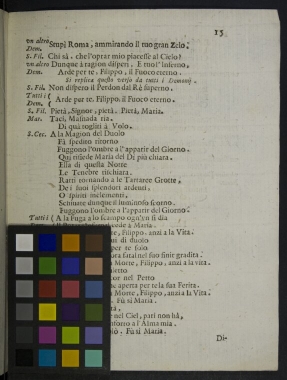 15
vn altro Stupì Roma, ammirando il tuo gran Zelo.
Dem.
S. Fil. Chi sà. che l'oprar mio piacesse al Cielo?
vn altro Dunque à ragion disperi. E tuo l'Inferno.
Dem. Arde per te, Filippo, il Fuoco eterno.
Si replica questo verso da tutti i Demonij.
S. Fil. Non dispero il Perdon dal Rè superno.
Tutti i
Dem. Arde per te, Filippo, il Fuoco eterno.
S. Fil. Pietà, Signor, pietà. Pietà, Maria.
Mar. Taci, Masnada ria.
Di quà togliti à Volo.
S. Cec. A la Magion del Duolo
Fà spedito ritorno
Fuggono l'ombre a l'apparir del Giorno.
Qui risiede Maria del Dì più chiara.
Ella di questa Notte
Le Tenebre rischiara.
Ratti tornando à le Tartaree Grotte,
De i suoi splendori ardenti,
O spiriti inclementi,
Schiuate dunque il luminoso scorno.
Fuggono l'ombre a l'apparir del Giorno.
Tutti i A la Fuga a lo scampo ogn'vn si dia
cede a Maria.
Morte, Filippo, anzi a la Vita.
di duolo
per te solo
fatal nel suo finir gradita.
Morte, Filippo, anzi a la vita.
nel Petto
aperta per te la sua Ferita.
Morte, Filippo, anzi a la Vita.
Fù sì Maria.
nel Ciel, pari non hà,
intorno a l'Alma mia
Fù sì Maria.
Di-